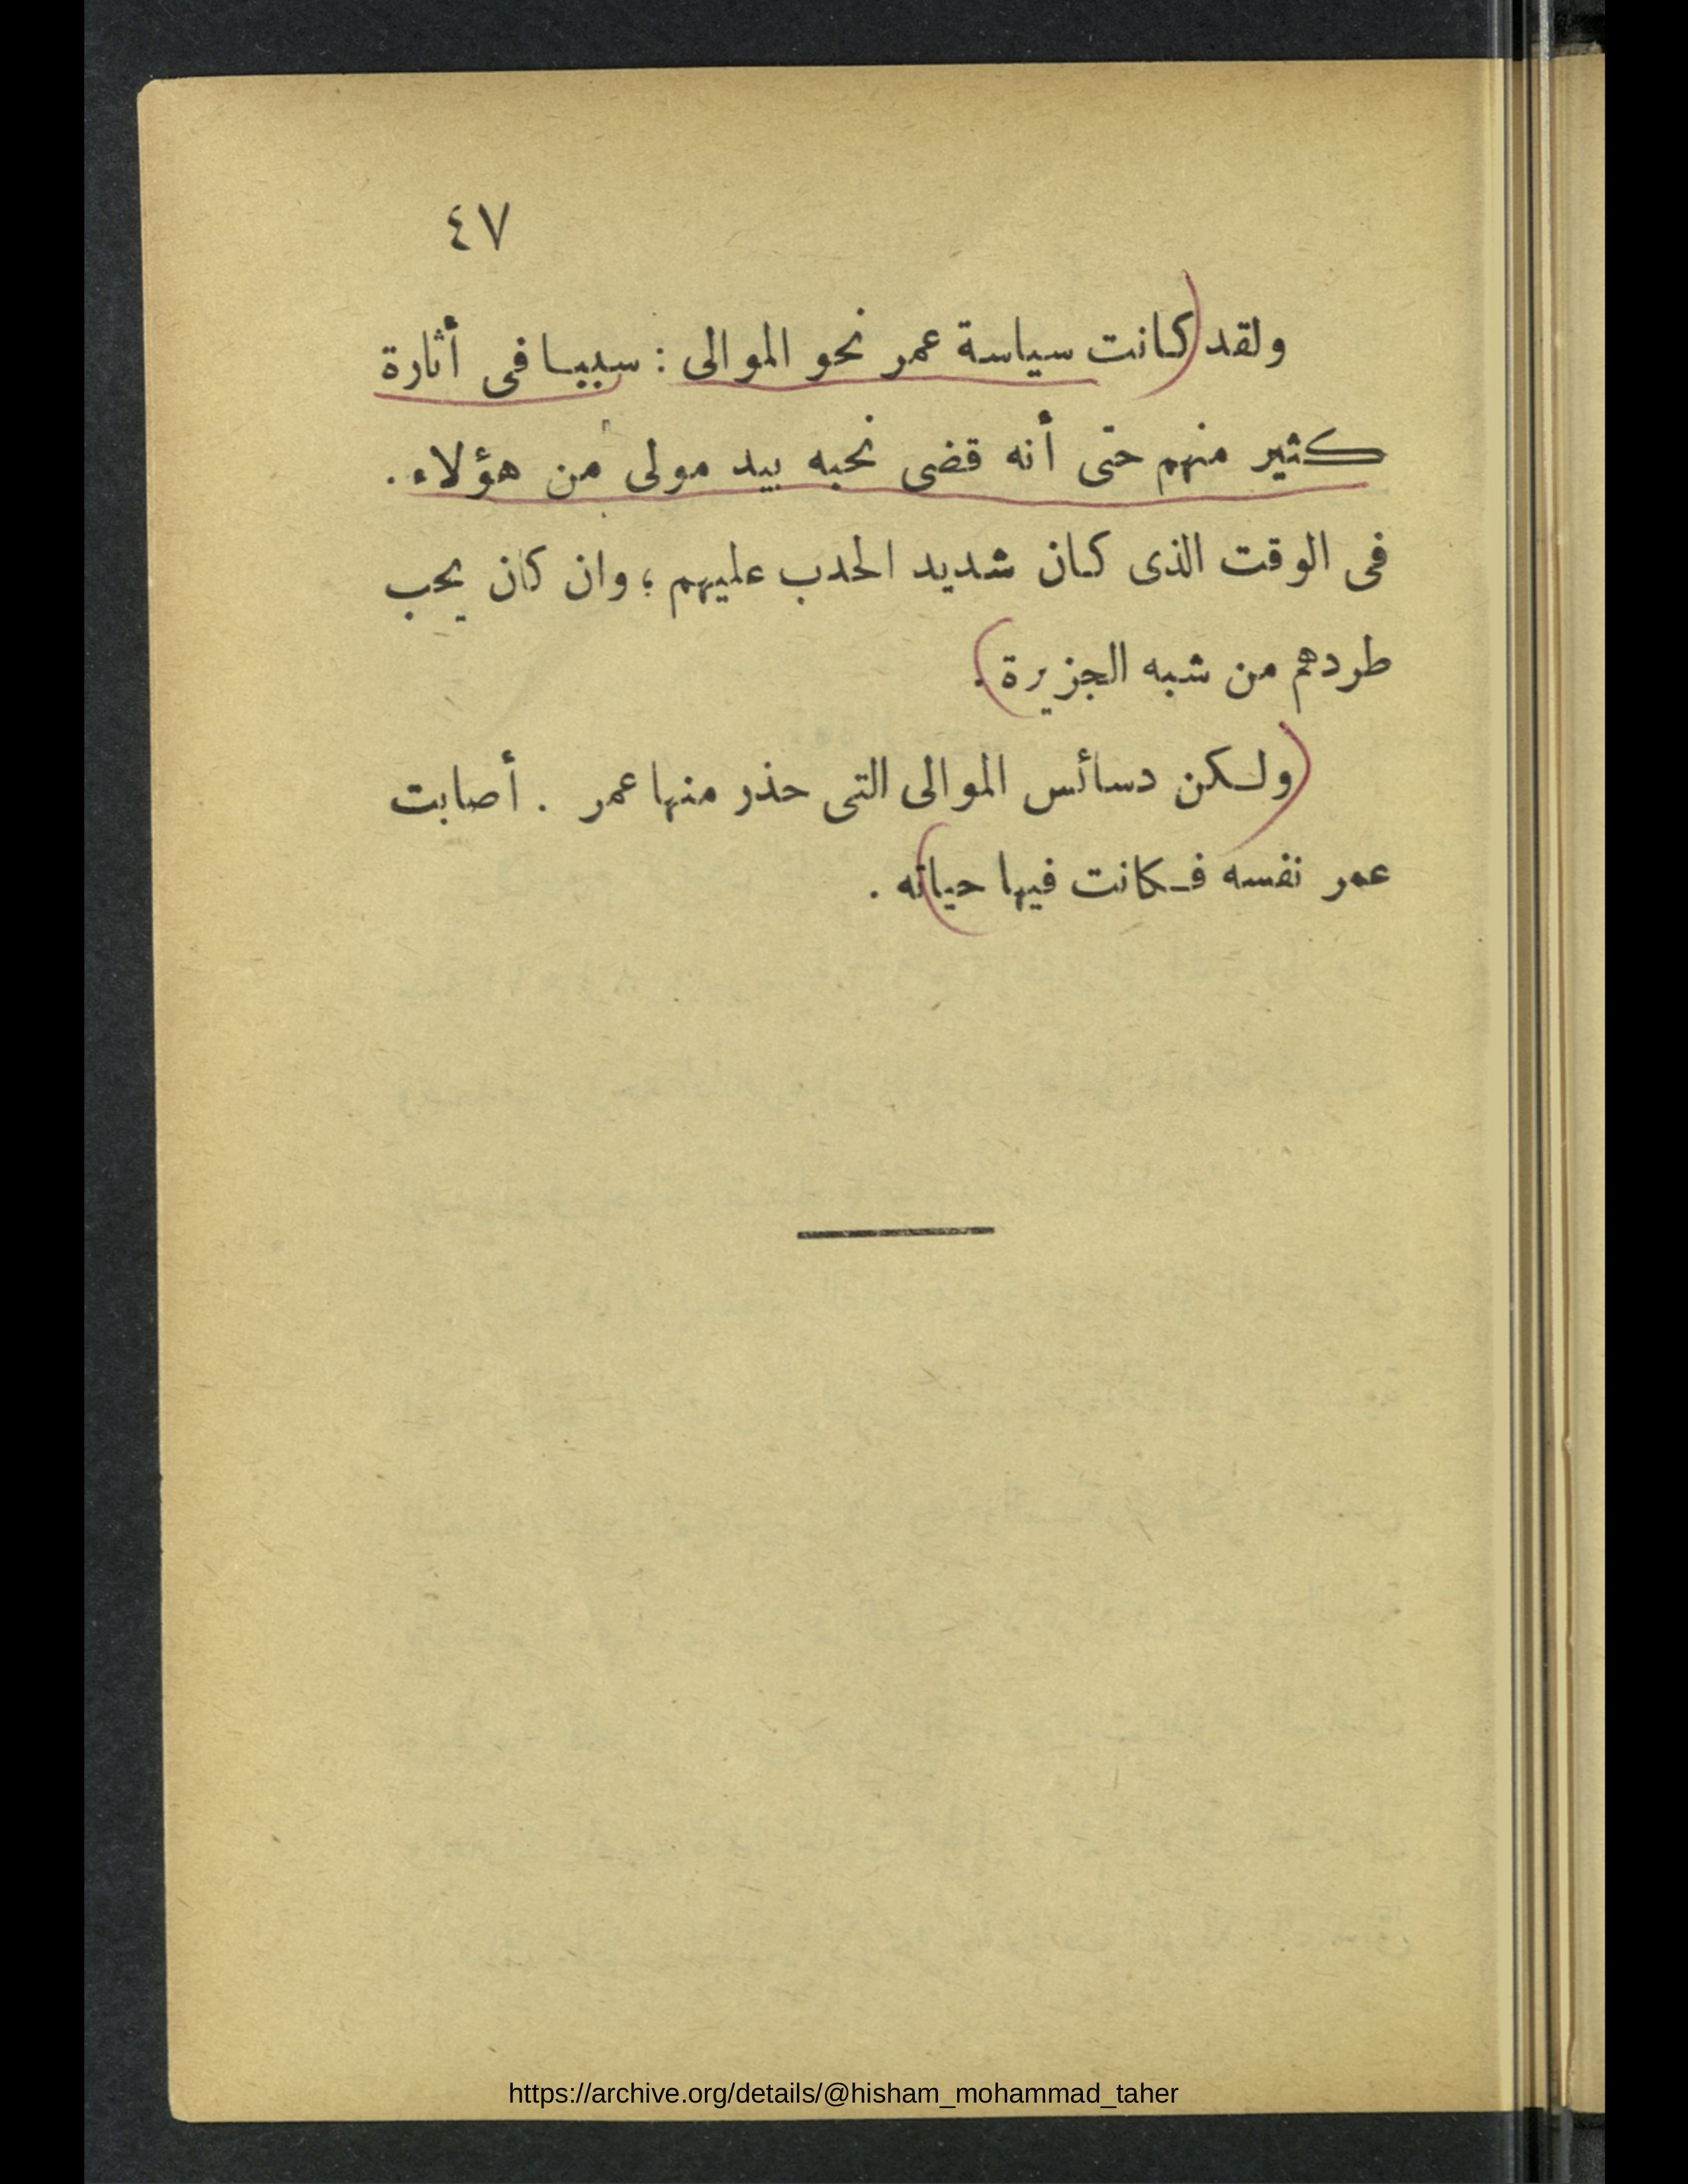 ٤٧
ولقد كانت سياسة عمر نحو الموالى : سببا فى أثارة
كثير منهم حتى أنه قضى نحبه بيد مولى من هؤلاء .
فى الوقت الذى كان شديد الحدب عليهم ؛ وان كان يحب
طردهم من شبه الجزيرة .
ولكن دسائس الموالى التى حذر منها عمر . أصابت
عمر نفسه فكانت فيها حياته .
https://archive.org/details/@hisham_mohammad_taher